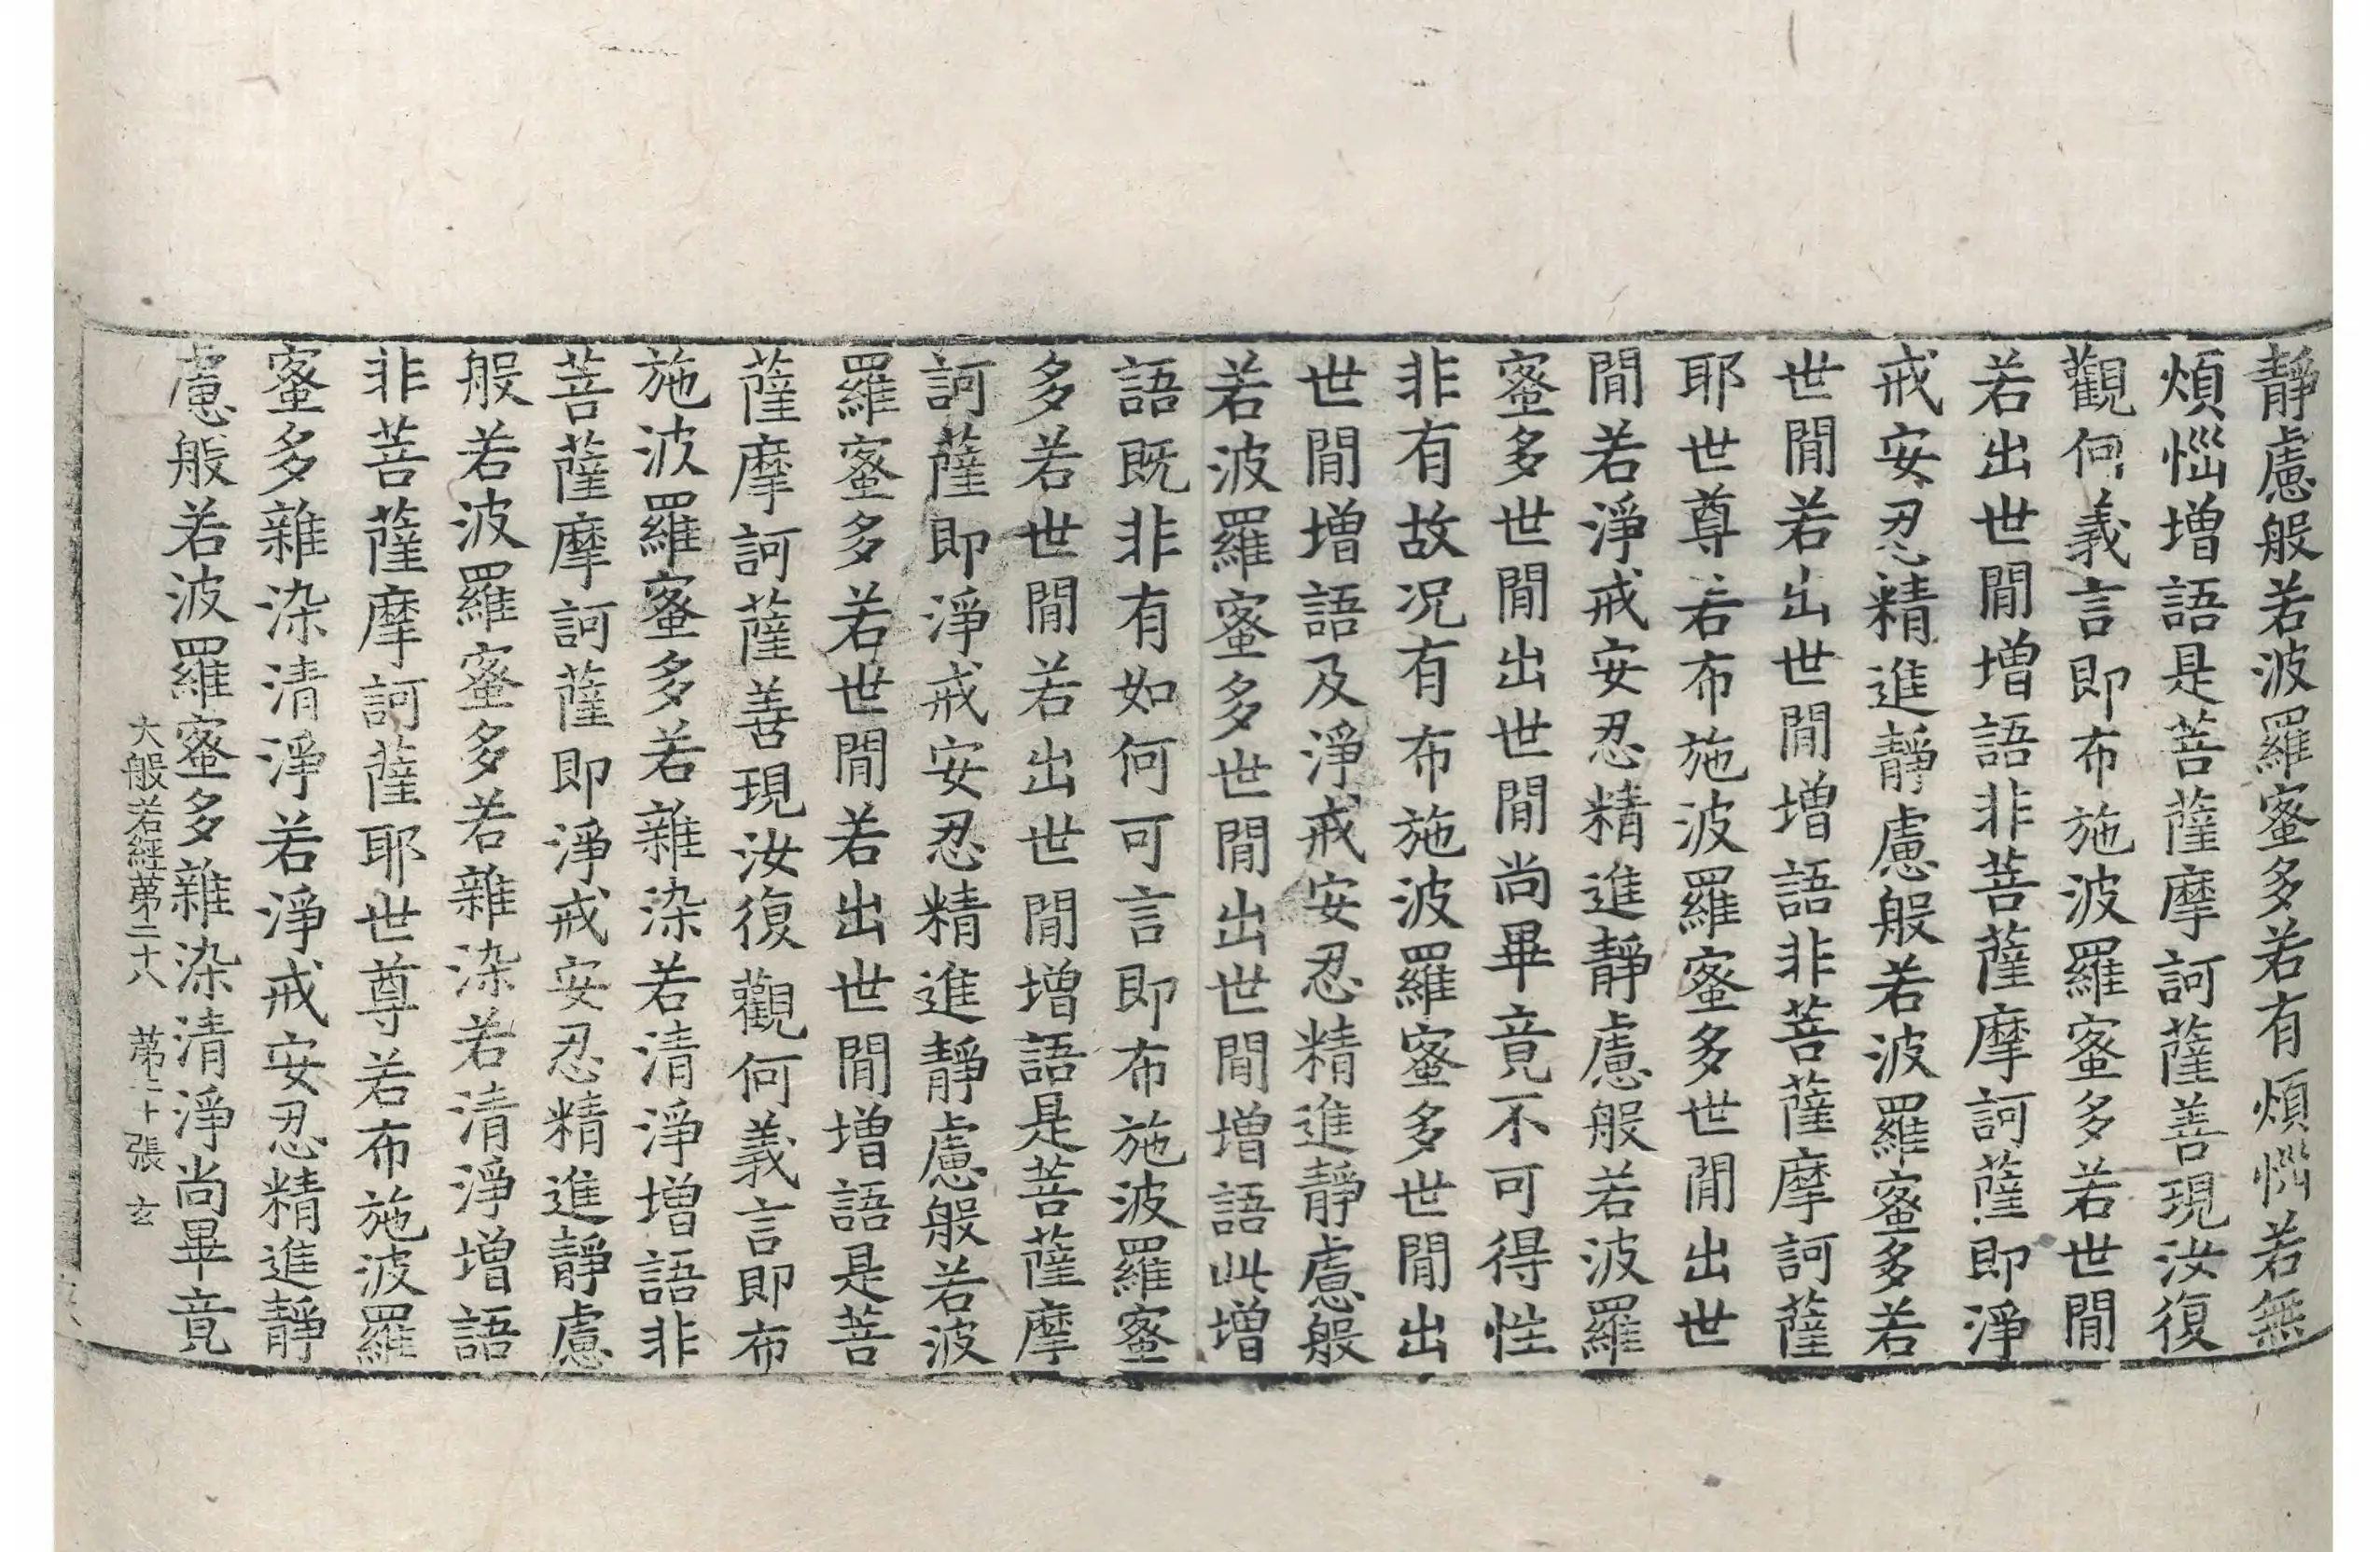 靜慮般若波羅蜜多若有煩惱若無
煩惱增語是菩薩摩訶薩善現汝復
觀何義言即布施波羅蜜多若世間
若出世間增語非菩薩摩訶薩即淨
戒安忍精進靜慮般若波羅蜜多若
世間若出世間增語非菩薩摩訶薩
耶世尊若布施波羅蜜多世間出世
間若淨戒安忍精進靜慮般若波羅
蜜多世間出世間尚畢竟不可得性
非有故况有布施波羅蜜多世間出
世間增語及淨戒安忍精進靜慮般
若波羅蜜多世間出世間增語此增
語既非有如何可言即布施波羅蜜
多若世間若出世間增語是菩薩摩
訶薩即淨戒安忍精進靜慮般若波
羅蜜多若世間若出世間增語是菩
薩摩訶薩善現汝復觀何義言即布
施波羅蜜多若雜染若清淨增語非
菩薩摩訶薩即淨戒安忍精進靜慮
般若波羅蜜多若雜染若清淨增語
非菩薩摩訶薩耶世尊若布施波羅
蜜多雜染清淨若淨戒安忍精進靜
慮般若波羅蜜多雜染清淨尚畢竟
大般若經第二十八 第二十張 玄